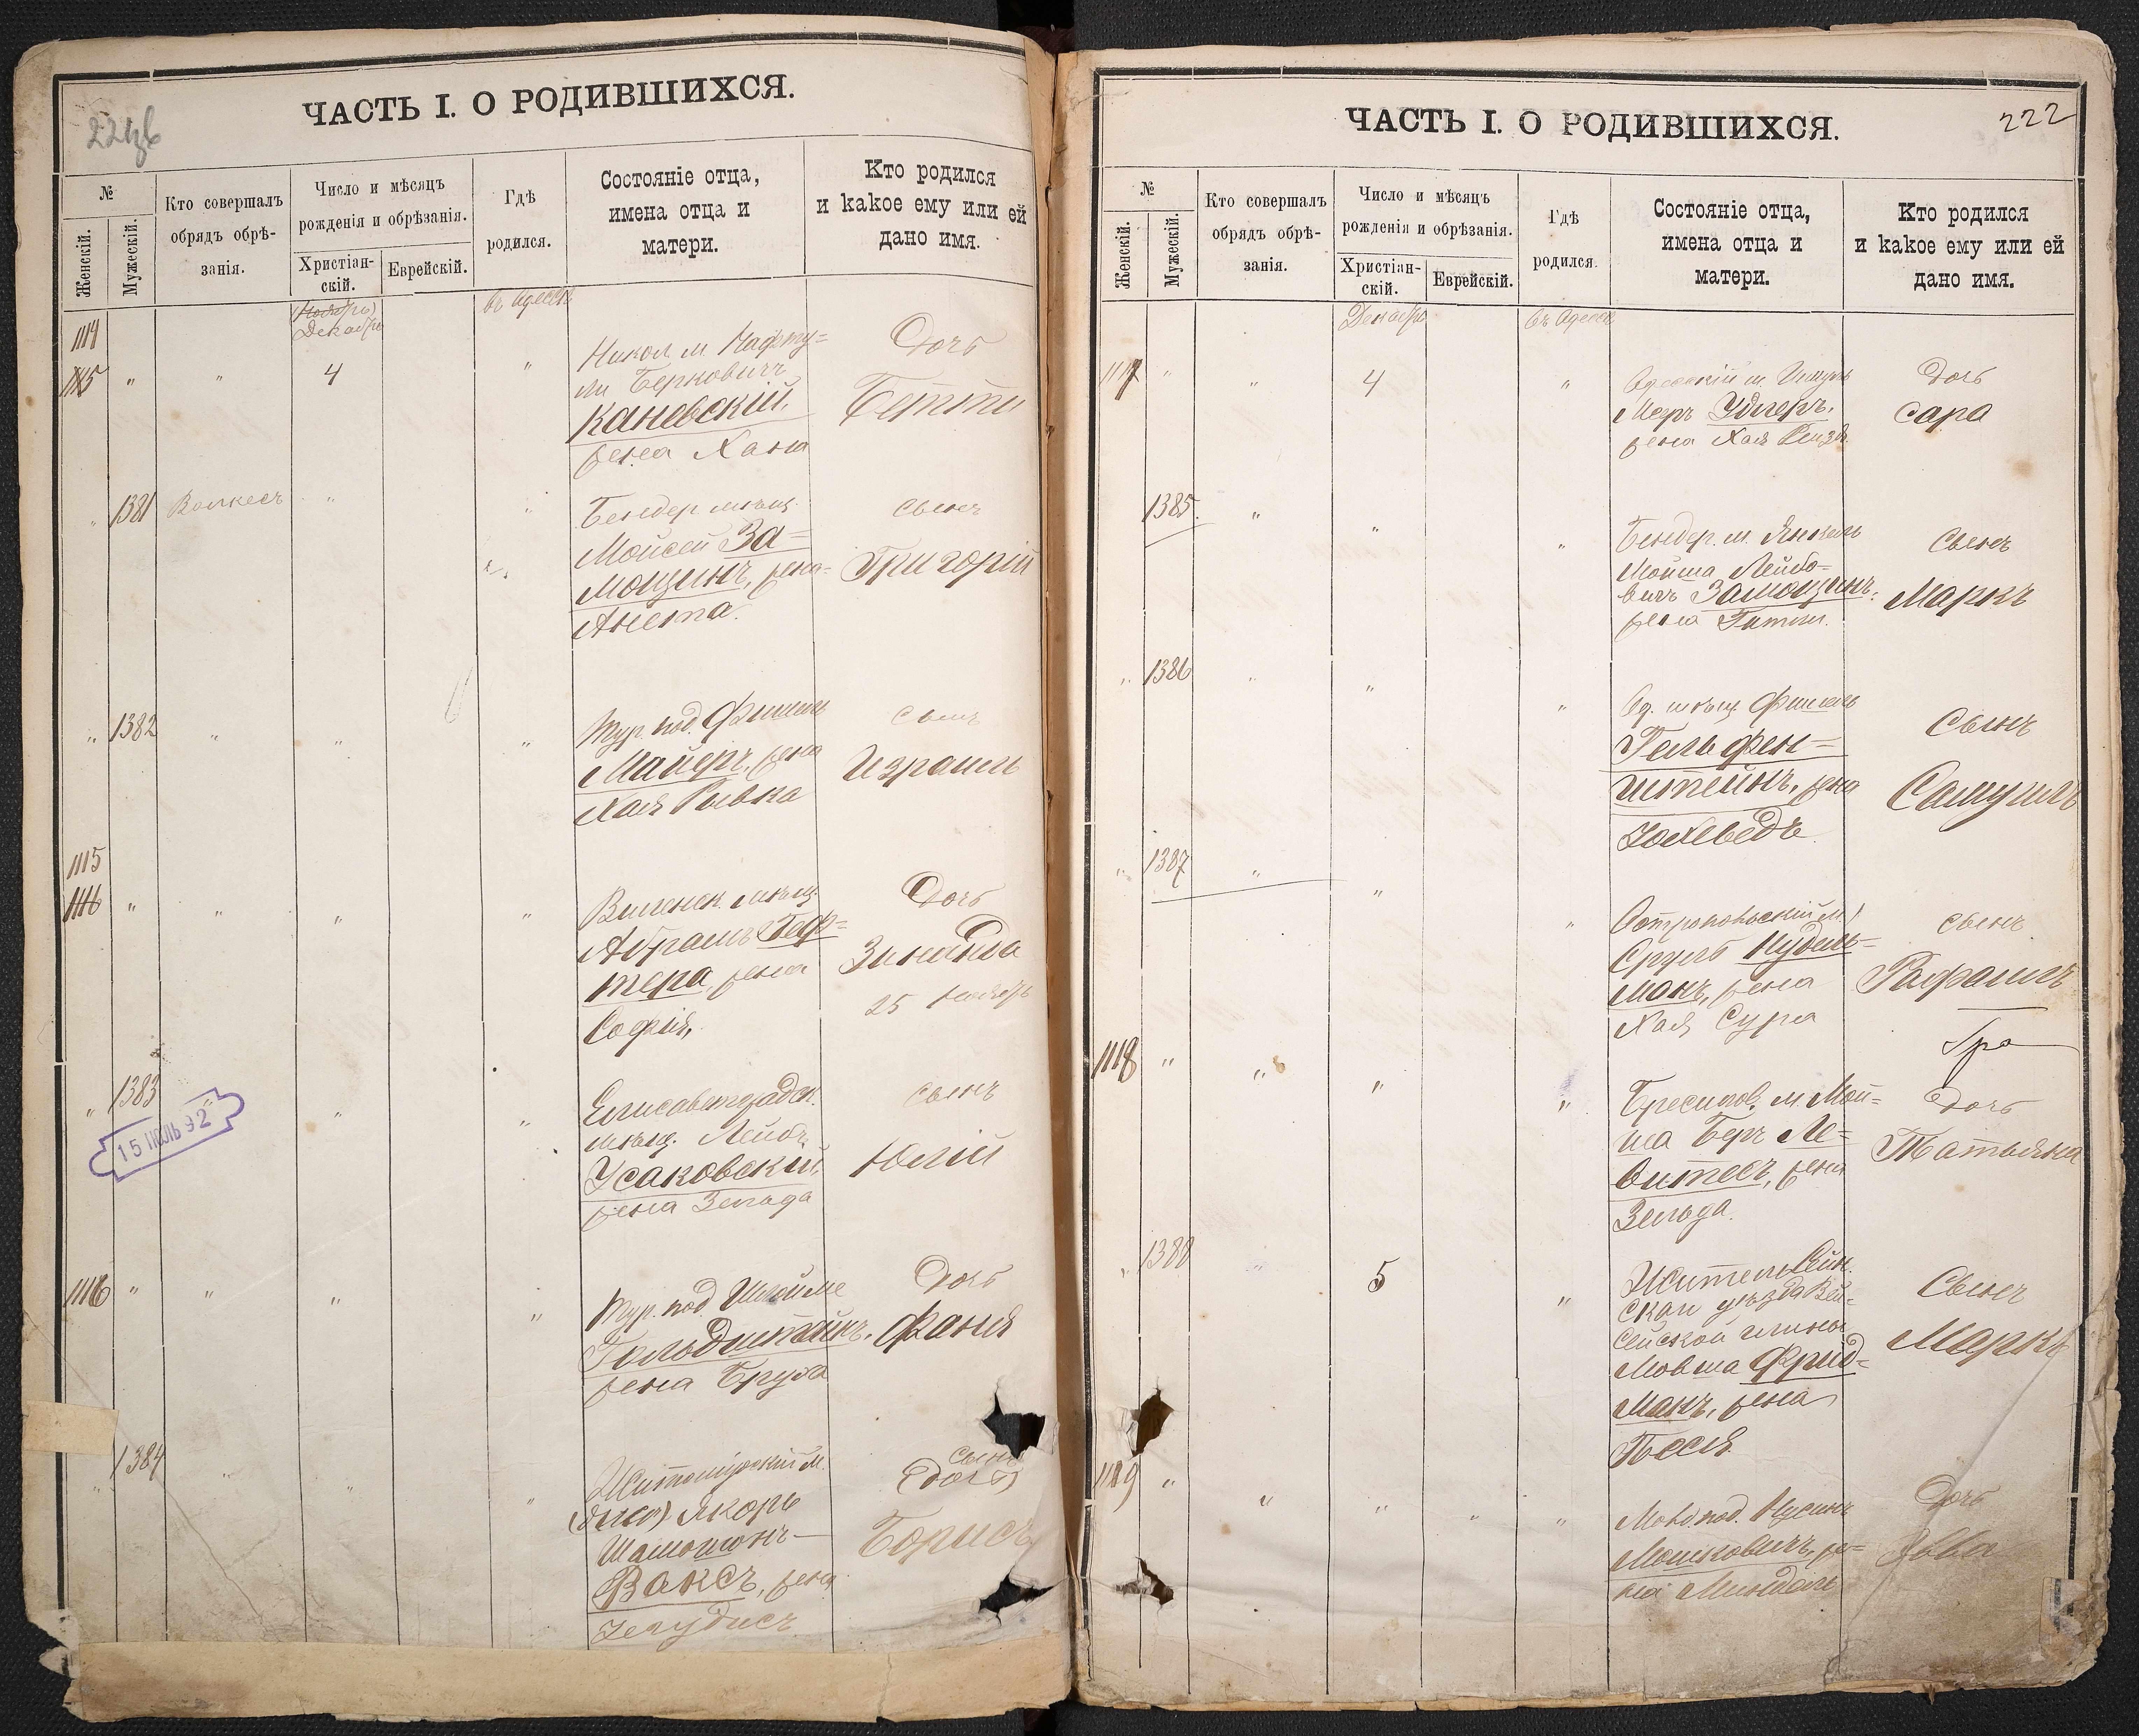 ЧАСТЬ I. О РОДИВШИХСЯ.
№
Женскій.
Мужескій.
Кто совершалъ
обрядъ обрѣ-
занія.
Число и мѣсяцъ
рожденія и обрѣзанія.
Христіан-
скій.
Еврейскій.
Гдѣ
родился.
Состояніе отца,
имена отца и
матери.
Кто родился
и како​е ему или ей
дано имя.
(Ноябрь)
Декабрь
въ Одессѣ
1114
1115 " " 4 "
Никол. м. Нафту-
ли Берковичъ
Каневскій,
жена Хана
Дочь
Бетти
" 1381 Волкесъ " "
Бендер. мѣщ.
Мойсей За-
мощинъ, жена
Анета.
Сынъ
Григорій
" 1382 " " "
Тур. под. Фишель
Майеръ, жена
Хая Рывка
Сынъ
Израиль
1115
1116 " " " "
Виленск. мѣщ.
Абрамъ Геф-
тера, жена
Софія,
Дочь
Зинаида
25 Ноябрь
" 1383 " " "
Елисаветградск.
мѣщ. Лейбъ
Усаковскій,
жена Зельда
Сынъ
Юлій
15 ИЮЛЬ 92
1116 " " " "
Тур. под. Шлойме
Голодштейнъ,
жена Бруха
Дочь
Фаня
" 1384 " " "
Житомірскій м.
Якоръ
Шамшонъ
Ваксъ, жена
Сынъ
(дочь)
Борисъ
ЧАСТЬ I. О РОДИВШИХСЯ.
222
№
Женскій.
Мужескій.
Кто совершалъ
обрядъ обрѣ-
занія.
Число и мѣсяцъ
рожденія и обрѣзанія.
Христіан-
скій.
Еврейскій.
Гдѣ
родился.
Состояніе отца,
имена отца и
матери.
Кто родился
и какое ему или ей
дано имя.
Декабрь
въ Одессѣ
1117 " " 4 "
Одесскій м.
Меръ Удлеръ,
жена Хая Рейзя
Дочь
Сара
1385 " " "
Бендер. м. Янкель
Мойша Лейбо-
вичъ Замощинъ,
жена Гитли.
Сынъ
Маркъ
" 1386 " " "
Од. мѣщ. Фишель
Гельфен-
штейнъ, жена
Іохеведъ
Сынъ
Самуилъ
" 1387 " " "
Остропольскій м.
Сруль Нудель-
манъ, жена
Хая Сура
Сынъ
Рафаилъ
1118 " " " "
м. Мой-
ша Беръ Ле-
витесъ, жена
Зельда.
Дочь
Татьяна
" 1388 " 5 "
Житель Сейн-
скаго уѣзда Вей-
сейской гмины
Мовша Фрид-
манъ, жена
Песся.
Сынъ
Маркъ
1119 " " " " "
Молд. под. Нусинъ
Мошковичъ, же-
на Миндель
Дочь
Эвва